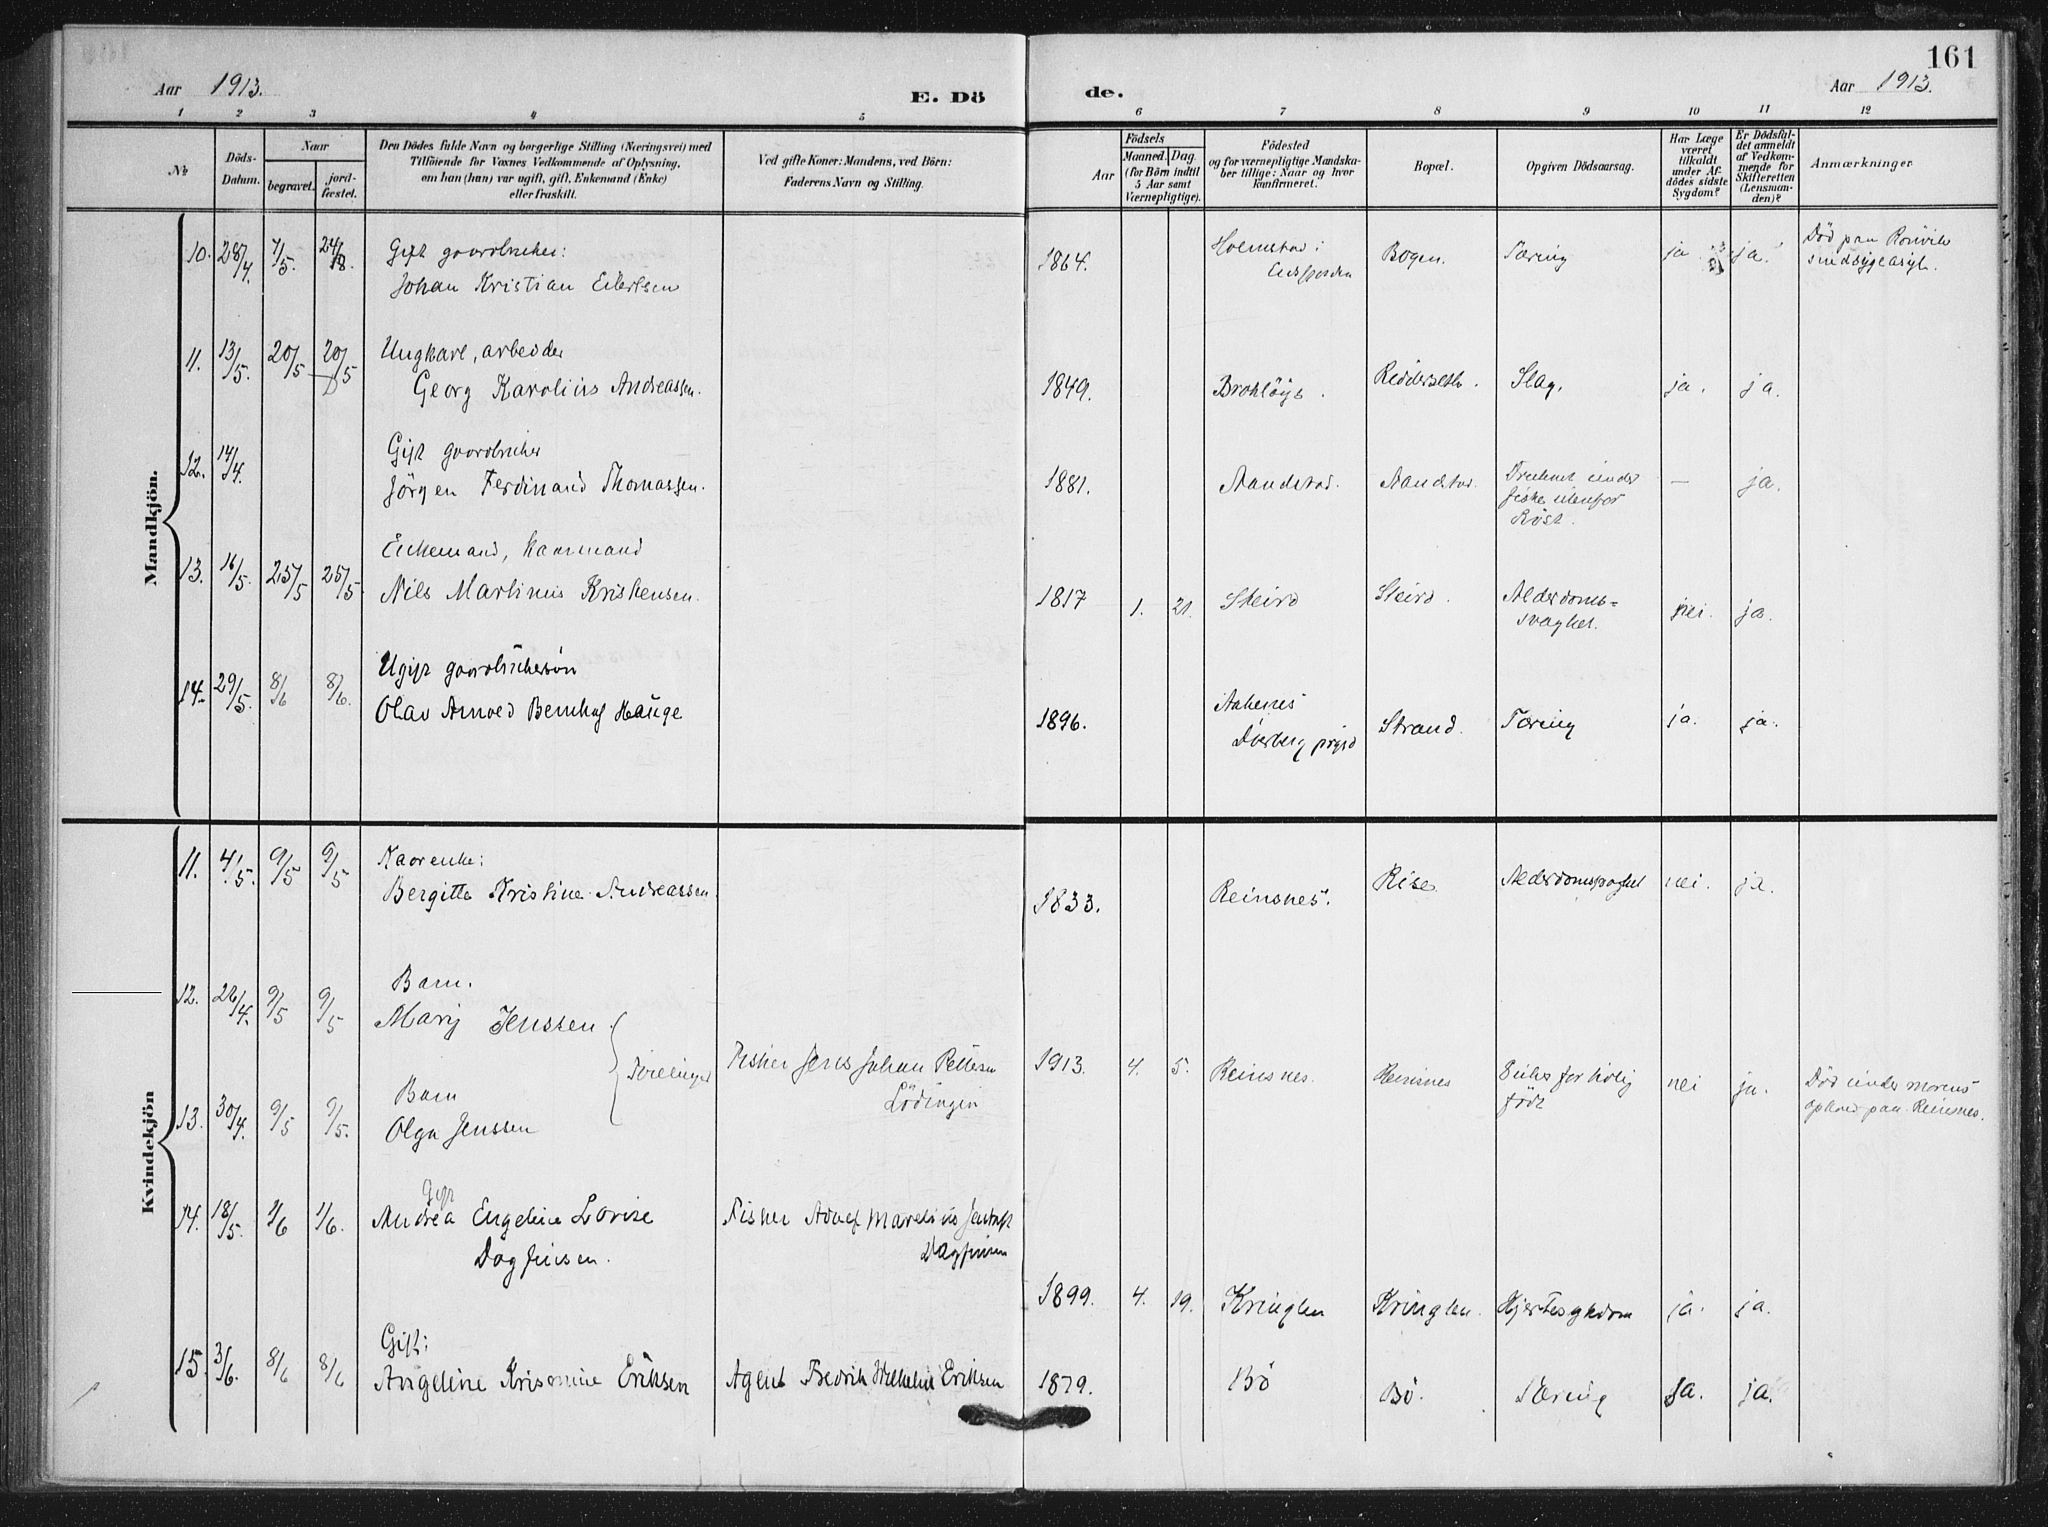 161
Aar 1913.
E. Dö
de.
Aar 1913.
1 2 3 4 5 6 7 8 9 10 11 12
№
Döds-
Datum.
Naar
begravet.
jord-
fæstet.
Den Dödes fulde Navn og borgerlige Stilling (Næringsvei) med
Tilföiende for Voxnes Vedkommende af Oplysning,
om han (hun) var ugift, gift, Enkemand (Enke)
eller fraskilt.
Ved gifte Koner: Mandens, ved Börn:
Faderens Navn og Stilling.
Aar
Födsels
Maaned. Dag
(for Börn indtil
5 Aar samt
Værnepligtige).
Födested
og for værnepligtige Mandska-
ber tillige: Naar og hvor
konfirmeret.
Bopæl.
Opgiven Dödsaarsag.
Har Læge
været
tilkaldt
under Af-
dödes sidste
Sygdom?
Er Dödsfal-
det anmeldt
af Vedkom-
mende for
Skifteretten
(Lensman-
den)?
Anmærkninger
Mandkjön.
10. 28/4. 7/5. 24/8. Gift gaardbruker:
Johan Kristian Eilertsen
1864. Holmstad i
Eidsfjorden
Bogen. Tæring ja. ja.
Död paa Rönvik
sindsygeasyl.
11. 13/5. 20/5 20/5 Ungkarl, arbeider
Georg Karolius Andreassen.
1849. Brokløys. Slag. ja. ja.
12. 14/4. Gift gaardbruker
Jörgen Ferdinand Thomassen.
1881. Aandstad. Aandstad. Druknet under
fiske utenfor
Röst.
— ja.
13. 16/5. 25/5 25/5 Enkemand, kaarmand
Nils Martinus Kristensen.
1817 1. 21. Steird Steird. Alderdoms-
svaghet.
nei. ja.
14. 29/5. 8/6 8/6. Ugift gaardbrukersön
Olav Arnold Bernhof Hauge
1896. Aakenes
Dverberg prgjd
Strand. Tæring ja. ja.
Kvindekjön
11. 4/5. 9/5 9/5 Kaarenke:
Bergitte Kristine Andreassen.
1833. Reinsnes. Rise nei. ja.
12. 28/4. 9/5 9/5 Barn.
Mary Jenssen
Tvillinger
13. 30/4. 9/5 9/5. Barn
Olga Jenssen
Fisker Jens Johan Pettersen
Lödingen
1913. 4. 5. Reinsnes. Reinsnes for tidlig
födt
nei ja. Död under morens
ophold paa Reinsnes.
14. 18/5. 1/6 1/6. Gift
Andrea Engeline Lovise
Dagfinsen.
Fisker Adolf Marelius
Dagfinsen
1899. 4. 19. Kringlen Kringlen. Hjertesykdom ja. ja.
15. 3/6. 8/6 8/6 Gift:
Angeline Krismine Eriksen
Agent Fredrik Wilhelm Eriksen
1879. Bö Bö. Tæring ja. ja.